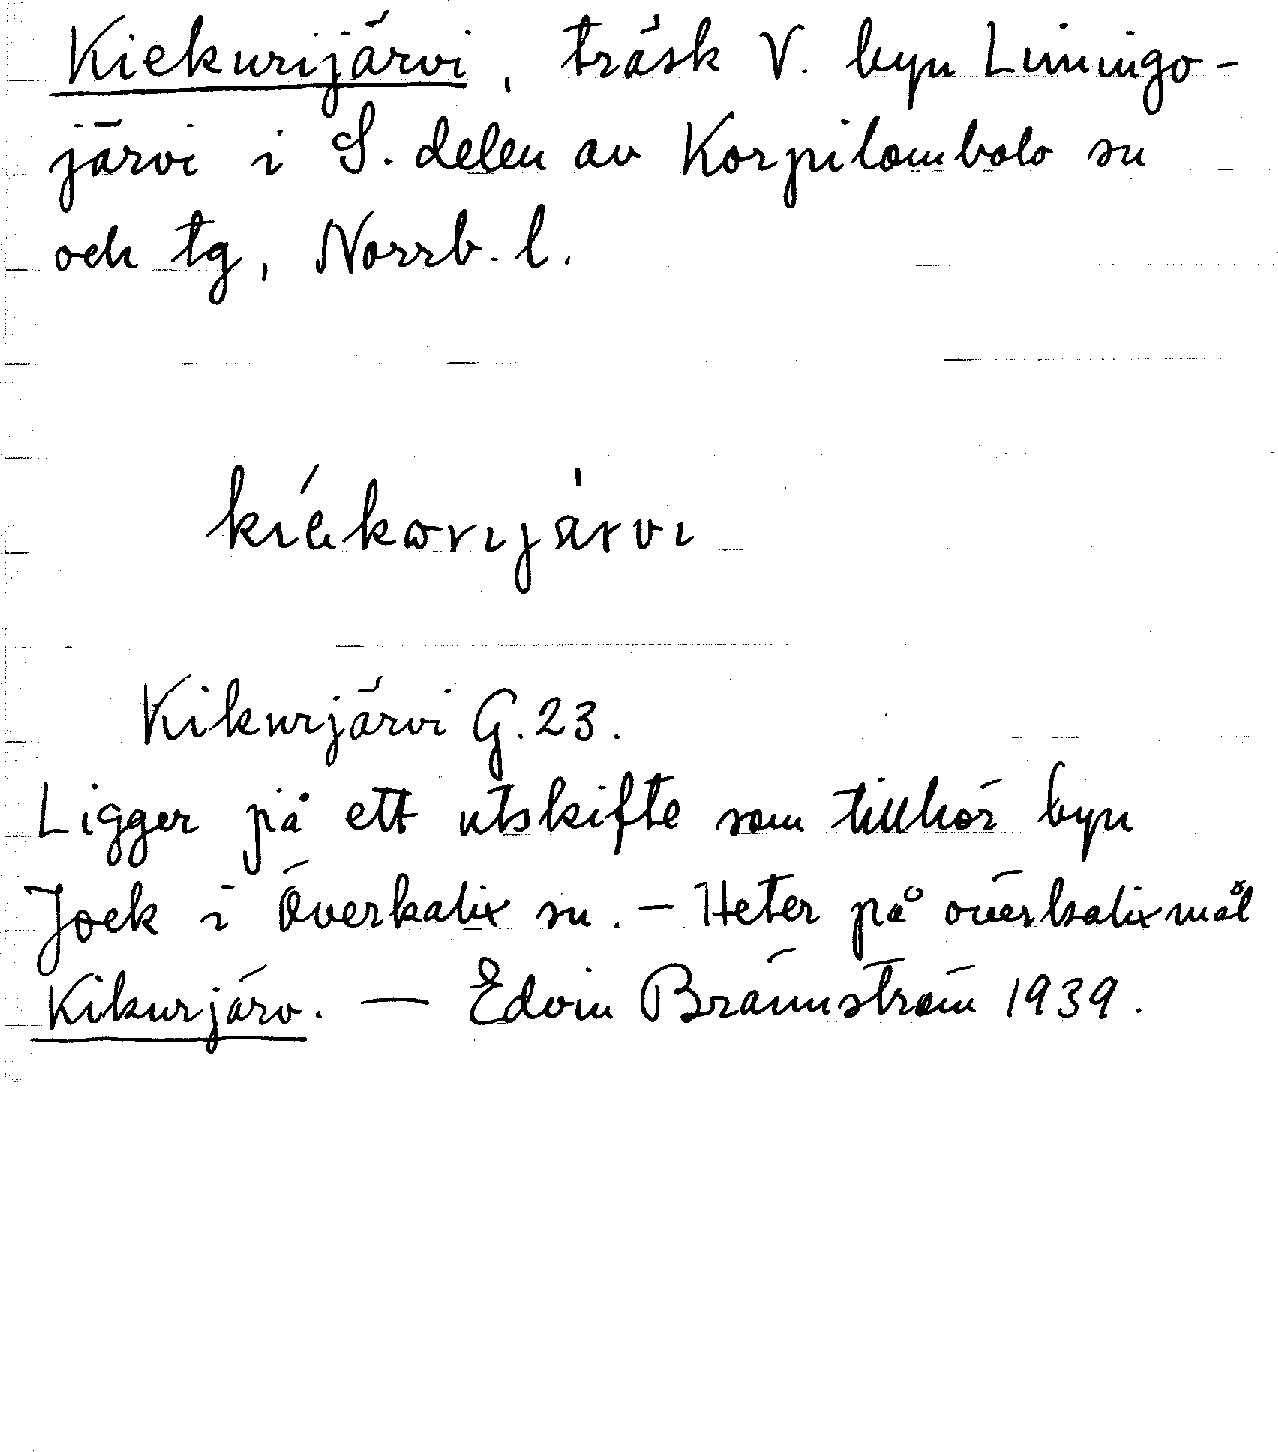 Kiekurijärvi, träsk V. byn Limingo-
järvi i S. delen av Korpilombolo sn
och tg, Norrb. l.
kíekωrijärvi
Kikurjärvi G. 23.
Ligger på ett utskifte som tillhör byn
Jock i Överkalix sn. — Heter på överkalixmål
Kikurjärv. — Edvin Brännström 1939.